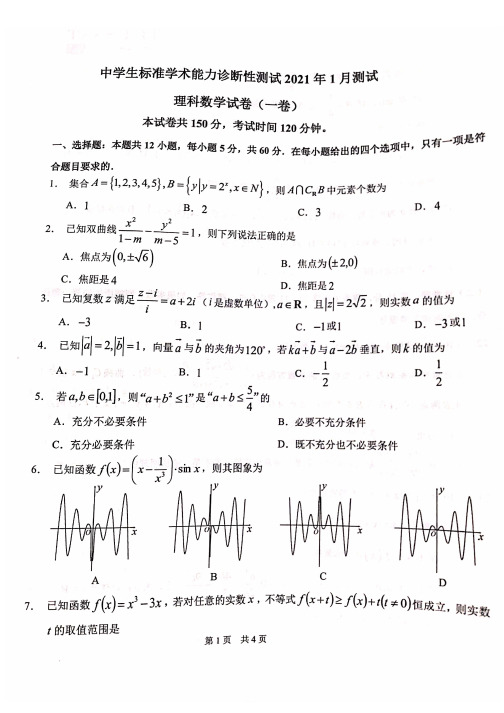 中学生标准学术能力诊断性测试 2021 年 1 月测试
理科数学试卷（一卷）
本试卷共 150 分，考试时间 120 分钟。
一、选择题：本题共 12 小题，每小题 5 分，共 60 分．在每小题给出的四个选项中，只有一项是符
合题目要求的．
1． 集合 A = {1,2,3,4,5}, B = {y|y = 2^x, x ∈ N}，则 A∩C_R B 中元素个数为
A．1 B．2 C．3 D．4
2． 已知双曲线 x²/(1−m) − y²/(m−5) = 1，则下列说法正确的是
A．焦点为(0,±√6) B．焦点为(±2,0)
C．焦距是 4 D．焦距是 2
3． 已知复数 z 满足 (z−i)/i = a+2i（i 是虚数单位）, a∈R，且|z| = 2√2，则实数 a 的值为
A．−3 B．1 C．−1或1 D．−3或1
4． 已知|a⃗| = 2,|b⃗| = 1，向量 a⃗ 与 b⃗ 的夹角为120°，若 ka⃗+b⃗ 与 a⃗−2b⃗ 垂直，则 k 的值为
A．−1 B．1 C．−1/2 D．1/2
5． 若 a,b∈[0,1]，则“a+b² ≤1”是“a+b≤5/4”的
A．充分不必要条件 B．必要不充分条件
C．充分必要条件 D．既不充分也不必要条件
6． 已知函数 f(x)=(x−1/x³)·sin x，则其图象为
y y y y
O x O x O x O x
A B C D
7． 已知函数 f(x)= x³−3x，若对任意的实数 x，不等式 f(x+t)≥ f(x)+t(t≠0)恒成立，则实数
t 的取值范围是
第 1 页 共 4 页